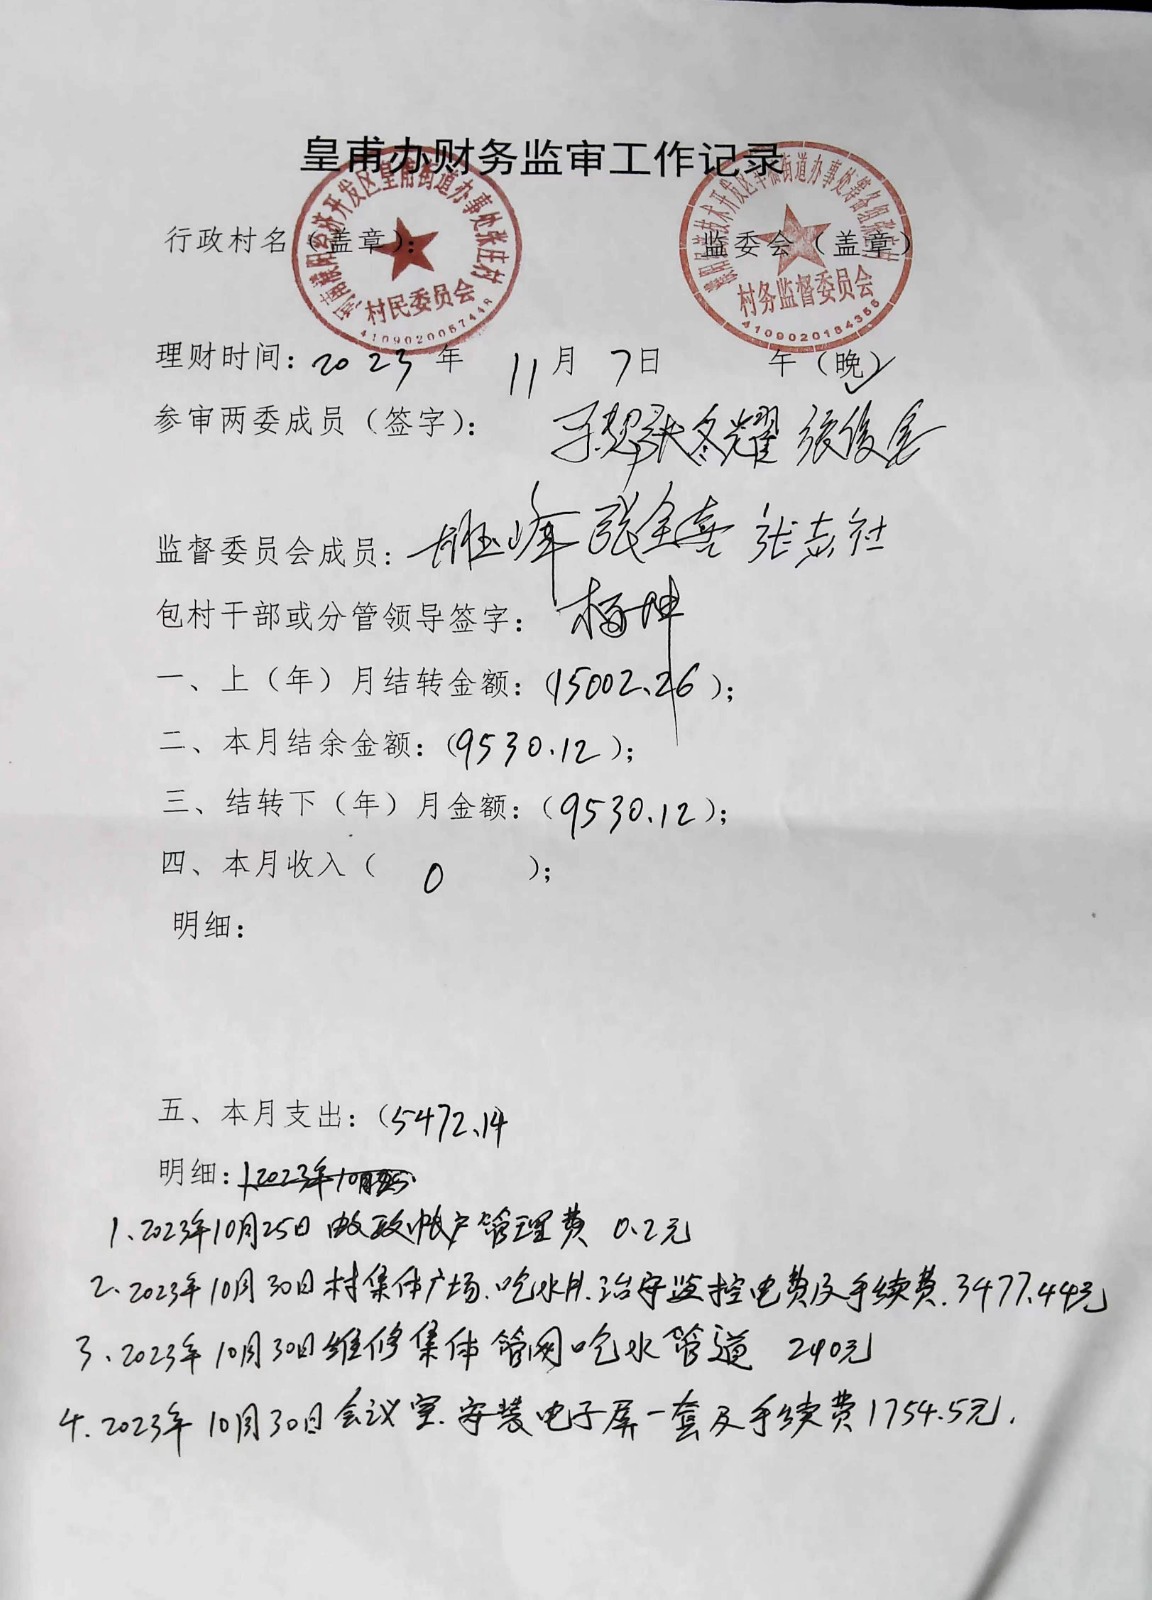 皇甫办财务监审工作记录
行政村名（盖章）： 监委会（盖章）
濮阳经济开发区皇甫街道办事处张庄村
村民委员会
4109020057448
村务监督委员会
4109020184356
理财时间：2023年 11月 7日 午（晚）
参审两委成员（签字）： 张冬耀 张俊
监督委员会成员： 张全喜 张志社
包村干部或分管领导签字： 杨坤
一、上（年）月结转金额：（15002.26）；
二、本月结余金额：（9530.12）；
三、结转下（年）月金额：（9530.12）；
四、本月收入（ 0 ）；
明细：
五、本月支出：（5472.14
明细：1.2023年10月25
1.2023年10月25日邮政帐户管理费 0.2元
2.2023年10月30日村集体广场.吃水井.治安监控电费及手续费.3477.44元
3.2023年10月30日维修集体管网吃水管道 240元
4.2023年10月30日会议室.安装电子屏一套及手续费1754.5元.